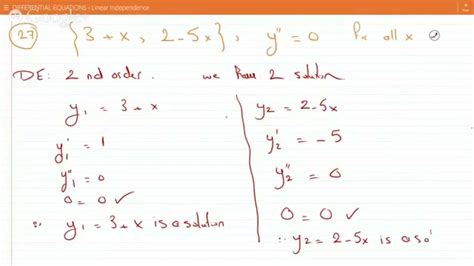 DIFFERENTIAL EQUATIONS - Linear Independence
27) { 3 + x , 2 - 5x } , y'' = 0 for all x
DE: 2nd order. we have 2 solution
y₁ = 3 + x
y₁' = 1
y₁'' = 0
0 = 0 ✓
∴ y₁ = 3 + x is a solution
y₂ = 2 - 5x
y₂' = -5
y₂'' = 0
0 = 0 ✓
∴ y₂ = 2 - 5x is a so